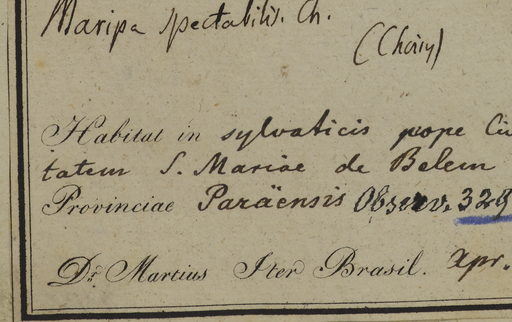 Maripa spectabilis. Ch.
(Choisy)
Habitat in sylvaticis prope Ci
tatem S. Mariae de Belem
Provinciae Paräensis Observ. 329
Dr. Martius Iter Brasil. Apr.